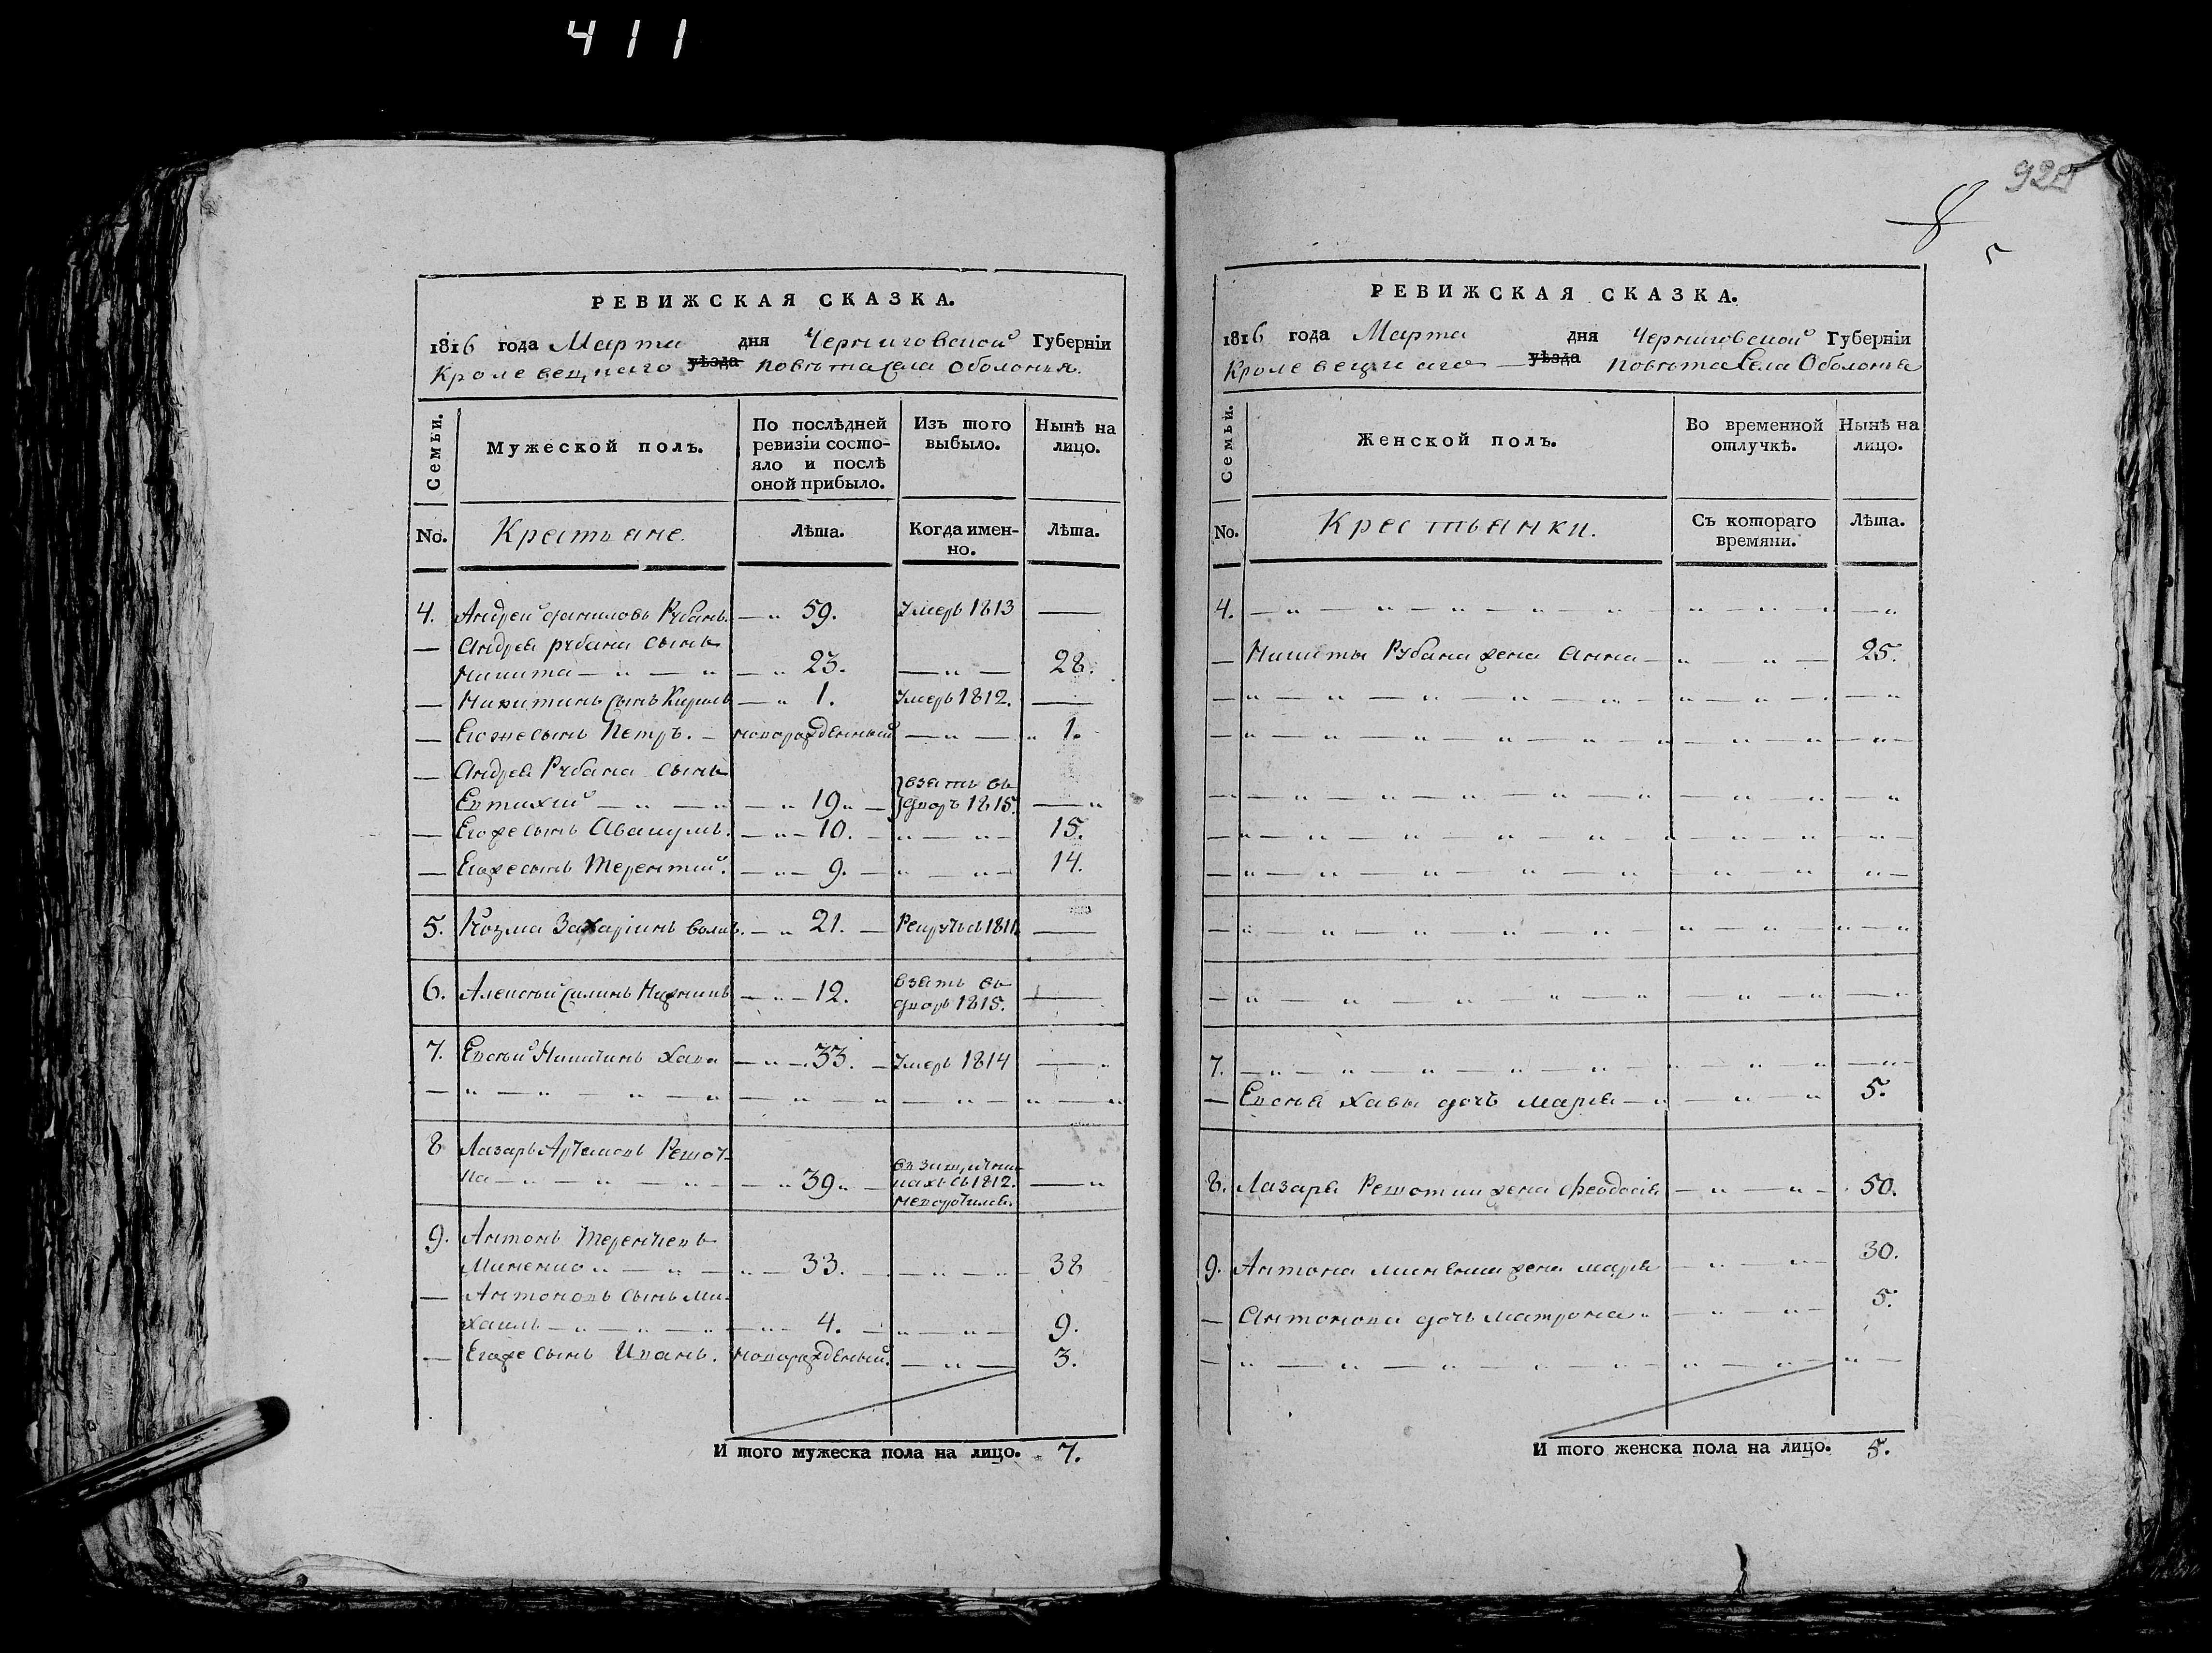 411
928
8
РЕВИЖСКАЯ СКАЗКА.
1816 года Марта дня Черниговской Губерніи
Кролевецкаго уѣзда Повѣта Села Оболонья.
Семьи.
Мужеской полъ.
По послѣдней ревизіи состо-
яло и послѣ оной прибыло.
Изъ того выбыло.
Нынѣ на лицо.
No. Крестьяне. Лѣта. Когда имен-но. Лѣта.
4. Андрей Даниловъ Рубанъ. — „ 59. Умеръ 1813 —
— Андрея Рубана сынъ
Никита — „ — „ — „ 23. — „ — 28.
— Никитинъ сынъ Кирилъ — „ 1. Умеръ 1812. —
— Егоже сынъ Петръ. — новорожденный — „ — „ 1.
— Андрея Рубана сынъ
Евтихий — „ — „ — „ 19 „ — взятъ въ
дворъ 1815. — „
— Егоже сынъ Авакумъ. — „ — 10. — „ — „ — 15.
— Егоже сынъ Терентий. — „ — 9. — „ — „ — 14.
5. Козма Захаріинъ — „ 21. — Рекрутъ 1811. —
6. Алексѣй Силинъ — „ — 12. взятъ въ
дворъ 1815. —
7. Евсѣй Никитинъ Хава — „ — 33. — Умеръ 1814 — „
— „ — „ — „ — „ — „ — „ — „ — „ — „
8 Лазарь Артемовъ Решот-
ка — „ — „ — „ — — „ 39 „ — въ защитни-
кахъ съ 1812.
неворотился. — „
9. Антонъ Терентіевъ
Миненко „ — „ — „ — 33. — — „ — „ 38
— Антоновъ сынъ Ми-
хаилъ — „ — „ — „ — „ — 4. — „ — „ — 9.
— Егоже сынъ Иванъ. новорожденный. — „ — 3.
И того мужеска пола на лицо. 7.
РЕВИЖСКАЯ СКАЗКА.
1816 года Марта дня Черниговской Губерніи
Кролевецкаго — уѣзда Повѣта Села Оболонья
Семьи.
Женской полъ.
Во временной отлучкѣ.
Нынѣ на лицо.
No. Крестьянки. Съ котораго времяни. Лѣта.
4. — „ — „ — „ — „ — „ „ — „ — „ — „
— Никиты Рубана жена Анна — „ — „ — 25.
— „ — „ — „ — „ — „ — „ — „ — „ — „
— „ — „ — „ — „ — „ — „ — „ — „ —
— „ — „ — „ — „ — „ — „ — „ — „
— „ — „ — „ — „ — „ — „ — „ — „ —
— „ — „ — „ — „ — „ — „ — „ „ —
— „ — „ — „ — „ — „ „ — „ — „ — „
— „ — „ — „ — „ — „ — „ — „ — „
7. — „ — „ — „ — „ — „ — „ — „ — „ —
— Евсѣя Хавы дочъ Марія — „ — „ — „ 5.
8. Лазаря Решотки жена Феодосія — „ — „ — 50.
9. Антона Миненка жена Марія — „ — „ — 30.
— Антонова дочъ Матрона „ — „ — „ — 5.
— „ — „ — „ — „ — „ — „ — „ — „ —
И того женска пола на лицо. 5.